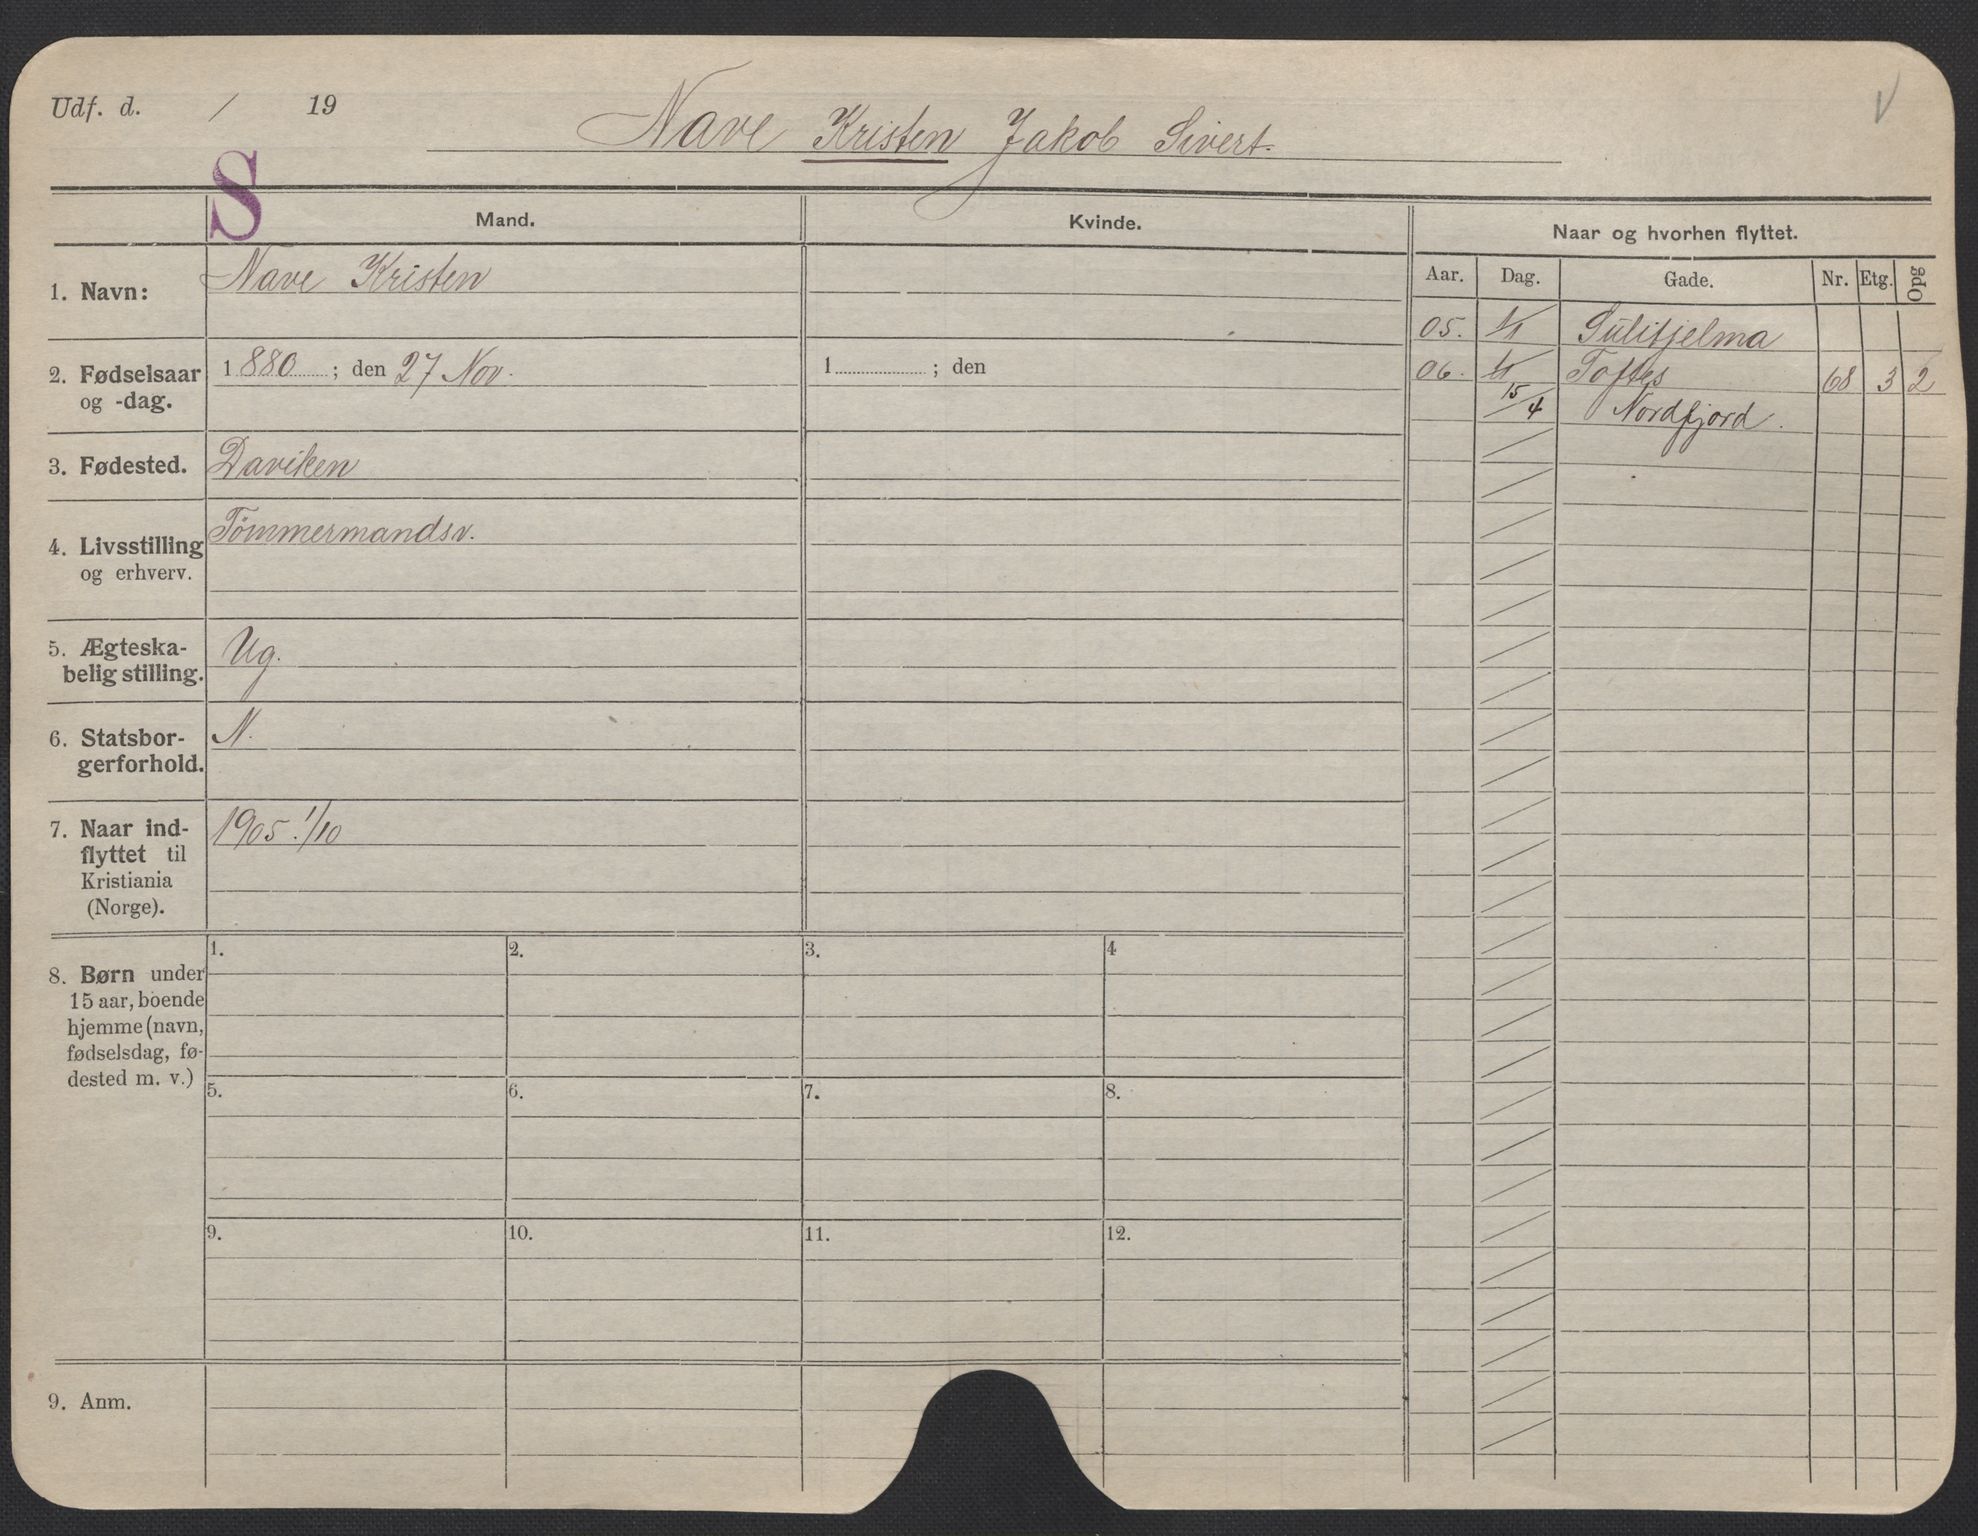 Udf. d. / 19
Nave Kristen Jakob Sivert.
V
S
Mand.
Kvinde.
Naar og hvorhen flyttet.
Aar. Dag. Gade. Nr. Etg. Opg
1. Navn:
Nave Kristen
05. 1/1 Sulitjelma
06. 1/1 Toftes 68 3 2
15/4 Nordfjord.
2. Fødselsaar
og -dag.
1880 ; den 27 Nov.
1 ; den
3. Fødested.
Daviken
4. Livsstilling
og erhverv.
Tömmermandsv.
5. Ægteska-
belig stilling.
Ug.
6. Statsbor-
gerforhold.
N.
7. Naar ind-
flyttet til
Kristiania
(Norge).
1905. 1/10
8. Børn under
15 aar, boende
hjemme (navn,
fødselsdag, fø-
dested m. v.)
1. 2. 3. 4
5. 6. 7. 8.
9. 10. 11. 12.
9. Anm.